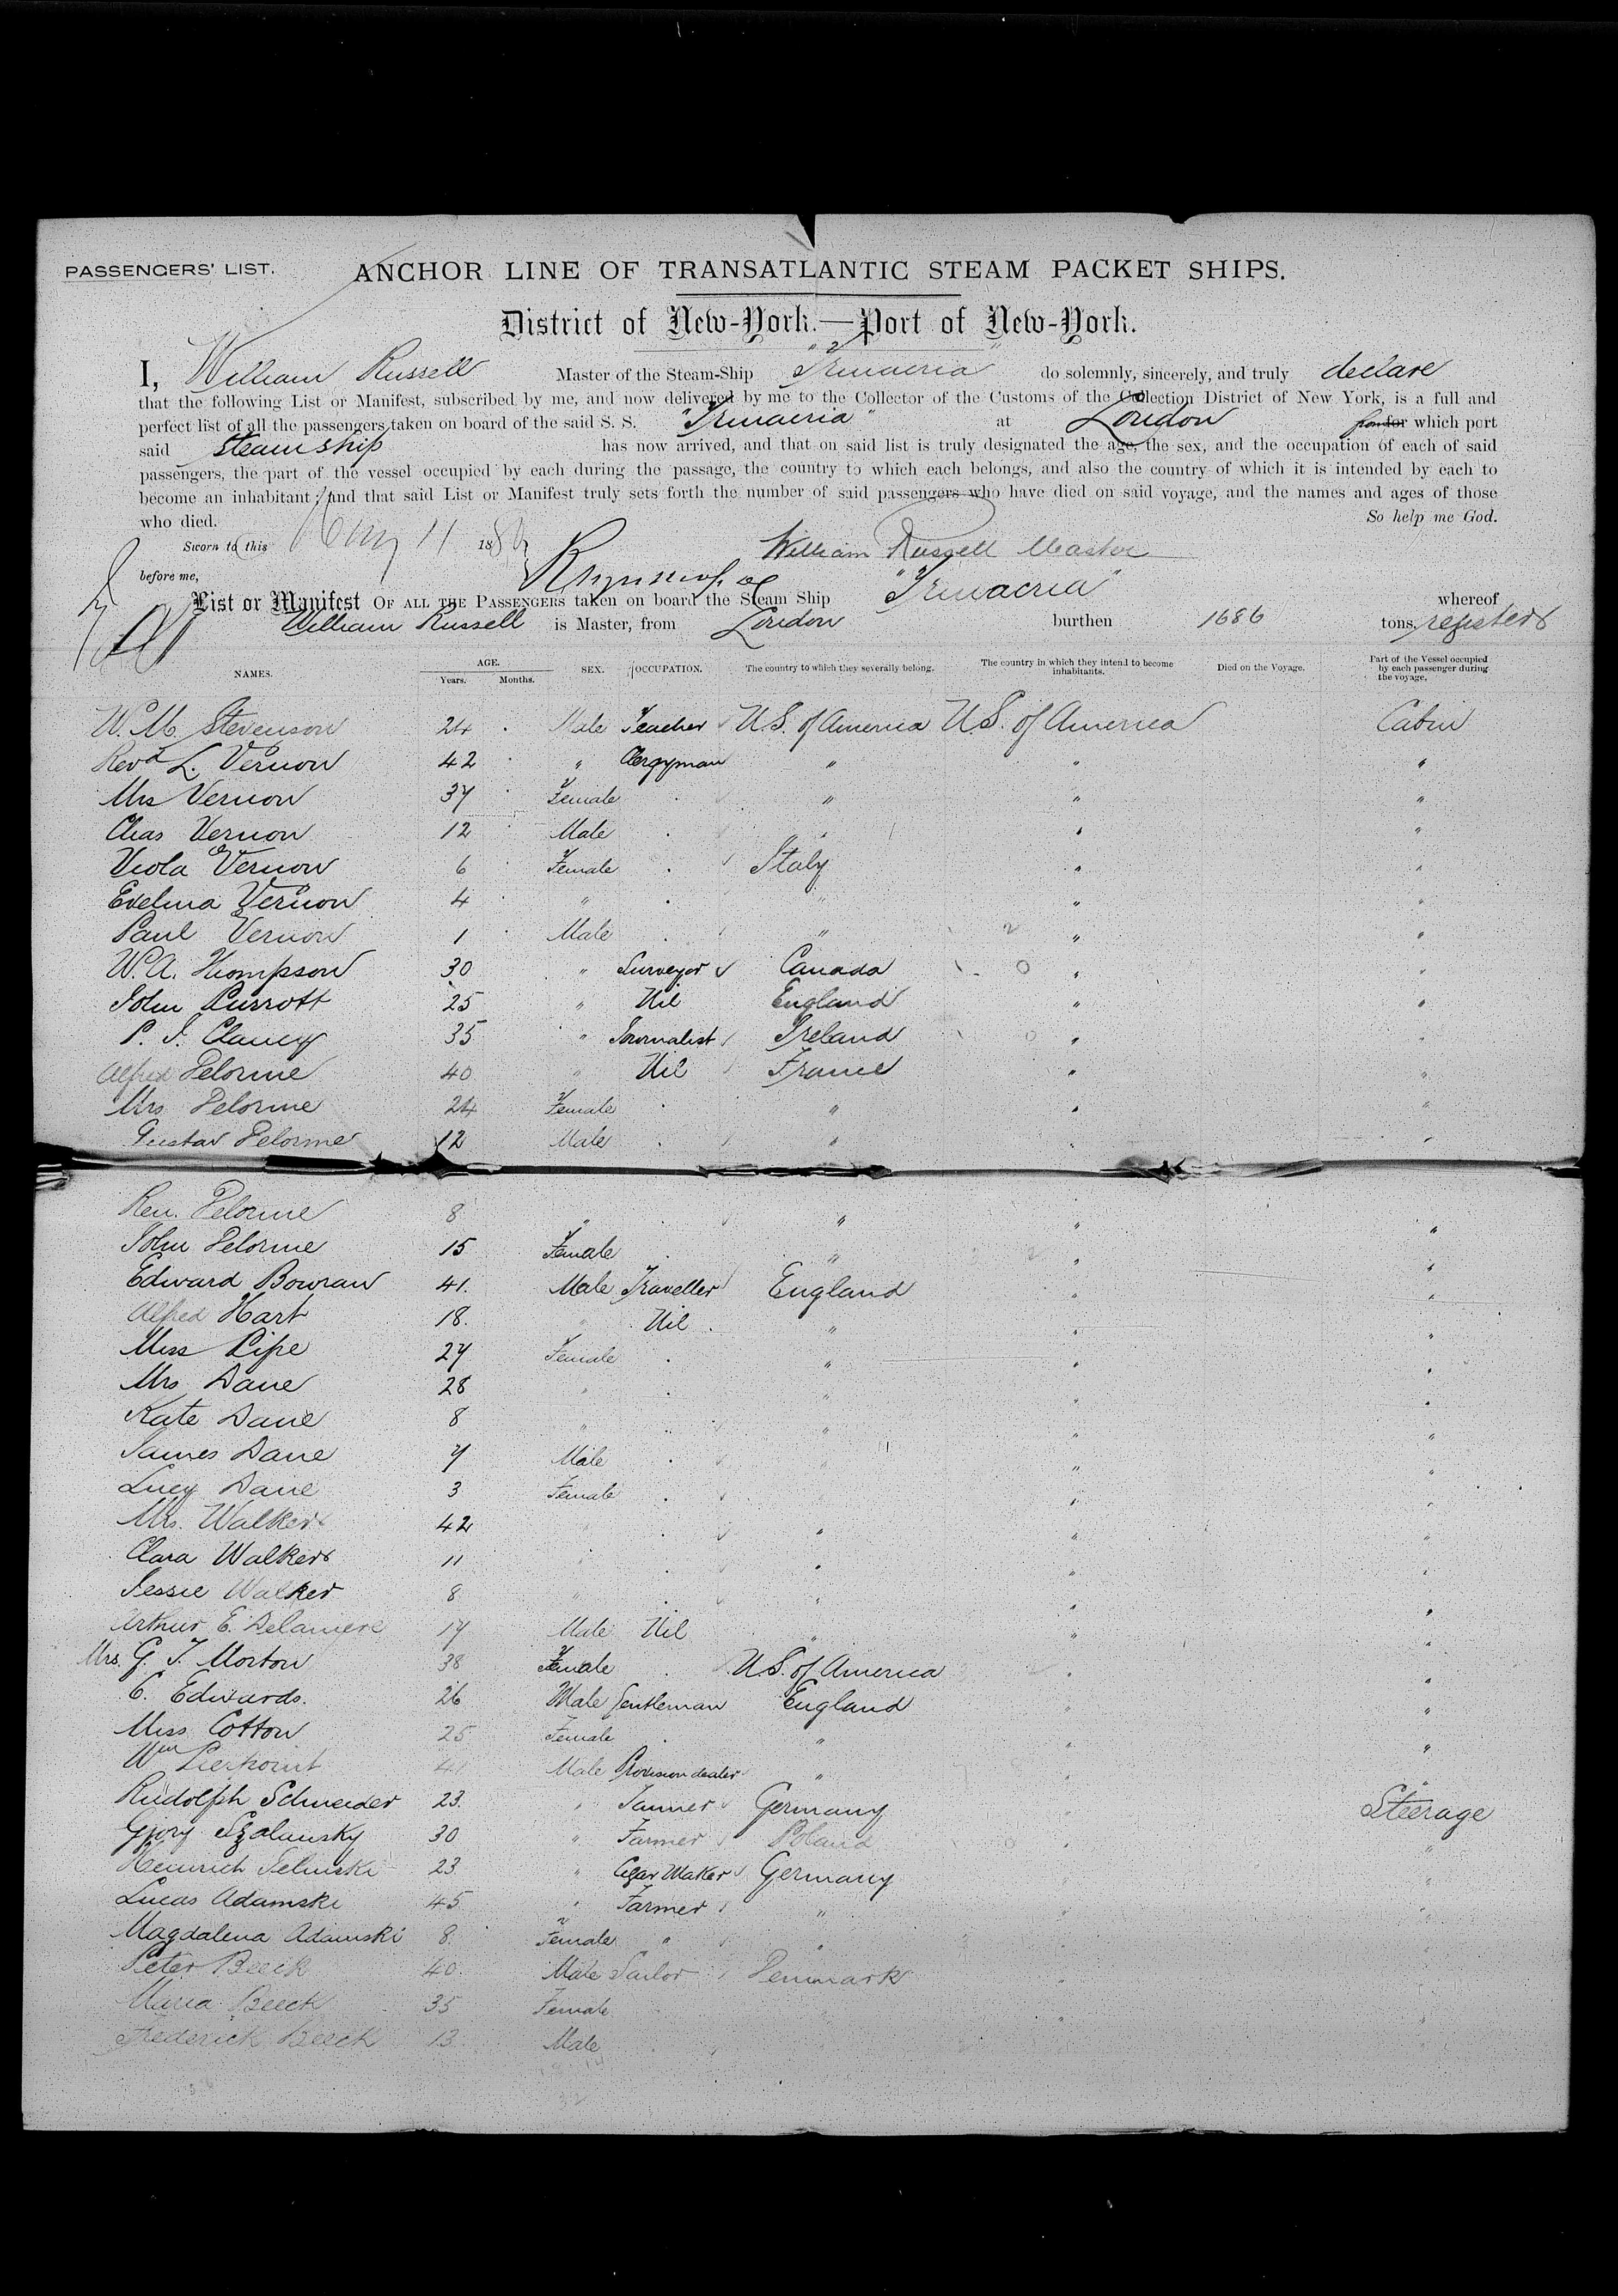 PASSENGERS' LIST.
ANCHOR LINE OF TRANSATLANTIC STEAM PACKET SHIPS.
District of New-York.—Port of New-York.
I, William Russell Master of the Steam-Ship "Trinacria" do solemnly, sincerely, and truly declare
that the following List or Manifest, subscribed by me, and now delivered by me to the Collector of the Customs of the Collection District of New York, is a full and
perfect list of all the passengers taken on board of the said S. S. "Trinacria" at London from which port
said Steamship has now arrived, and that on said list is truly designated the age, the sex, and the occupation of each of said
passengers, the part of the vessel occupied by each during the passage, the country to which each belongs, and also the country of which it is intended by each to
become an inhabitant; and that said List or Manifest truly sets forth the number of said passengers who have died on said voyage, and the names and ages of those
who died. So help me God.
Sworn to this 11 188 William Russell Master
before me,
List or Manifest OF ALL THE PASSENGERS taken on board the Steam Ship "Trinacria" whereof
William Russell is Master, from London burthen 1686 tons. register
NAMES. AGE. Years. Months. SEX. OCCUPATION. The country to which they severally belong. The country in which they intend to become inhabitants. Died on the Voyage. Part of the Vessel occupied by each passenger during the voyage.
W. M. Stevenson 24 Male Teacher U.S. of America U.S. of America Cabin
Revd L. Vernon 42 " Clergyman " " "
Mrs Vernon 37 Female " " "
Chas Vernon 12 Male " " "
Viola Vernon 6 Female Italy " "
Evelina Vernon 4 " " " "
Paul Vernon 1 Male " " "
W. A. Thompson 30 " Surveyor Canada " "
John Purrott 25 " Nil England " "
P. J. Clancy 35 " Journalist Ireland " "
Alfred Delorme 40 " Nil France " "
Mrs Delorme 24 Female " " "
Gustav Delorme 12 Male " " "
Ren. Delorme 8 " " " "
John Delorme 15 Female " " "
Edward Bowran 41. Male Traveller England " "
Alfred Hart 18. " Nil. " " "
Miss Pipe 27 Female " " "
Mrs Dane 28 " " " "
Kate Dane 8 " " " "
James Dane 7 Male " " "
Lucy Dane 3 Female " " "
Mrs. Walker 42 " " " "
Clara Walker 11 " " " "
Jessie Walker 8 " " " "
Arthur E. Delamere 17 Male Nil " " "
Mrs. G. T. Morton 38 Female U.S. of America " "
C. Edwards. 26 Male Gentleman England " "
Miss Cotton 25 Female " " "
Wm Pierpoint 41 Male Provision dealer " " "
Rudolph Schneider 23. " Tanner Germany " Steerage
Gjory Szalansky 30 " Farmer Poland " "
Heinrich Selinski 23 " Cigar Maker Germany " "
Lucas Adamski 45 " Farmer " " "
Magdalena Adamski 8. Female " " " "
Peter Beeck 40. Male Sailor Denmark " "
Maria Beeck 35 Female " "
Frederick Beeck 13 Male " "